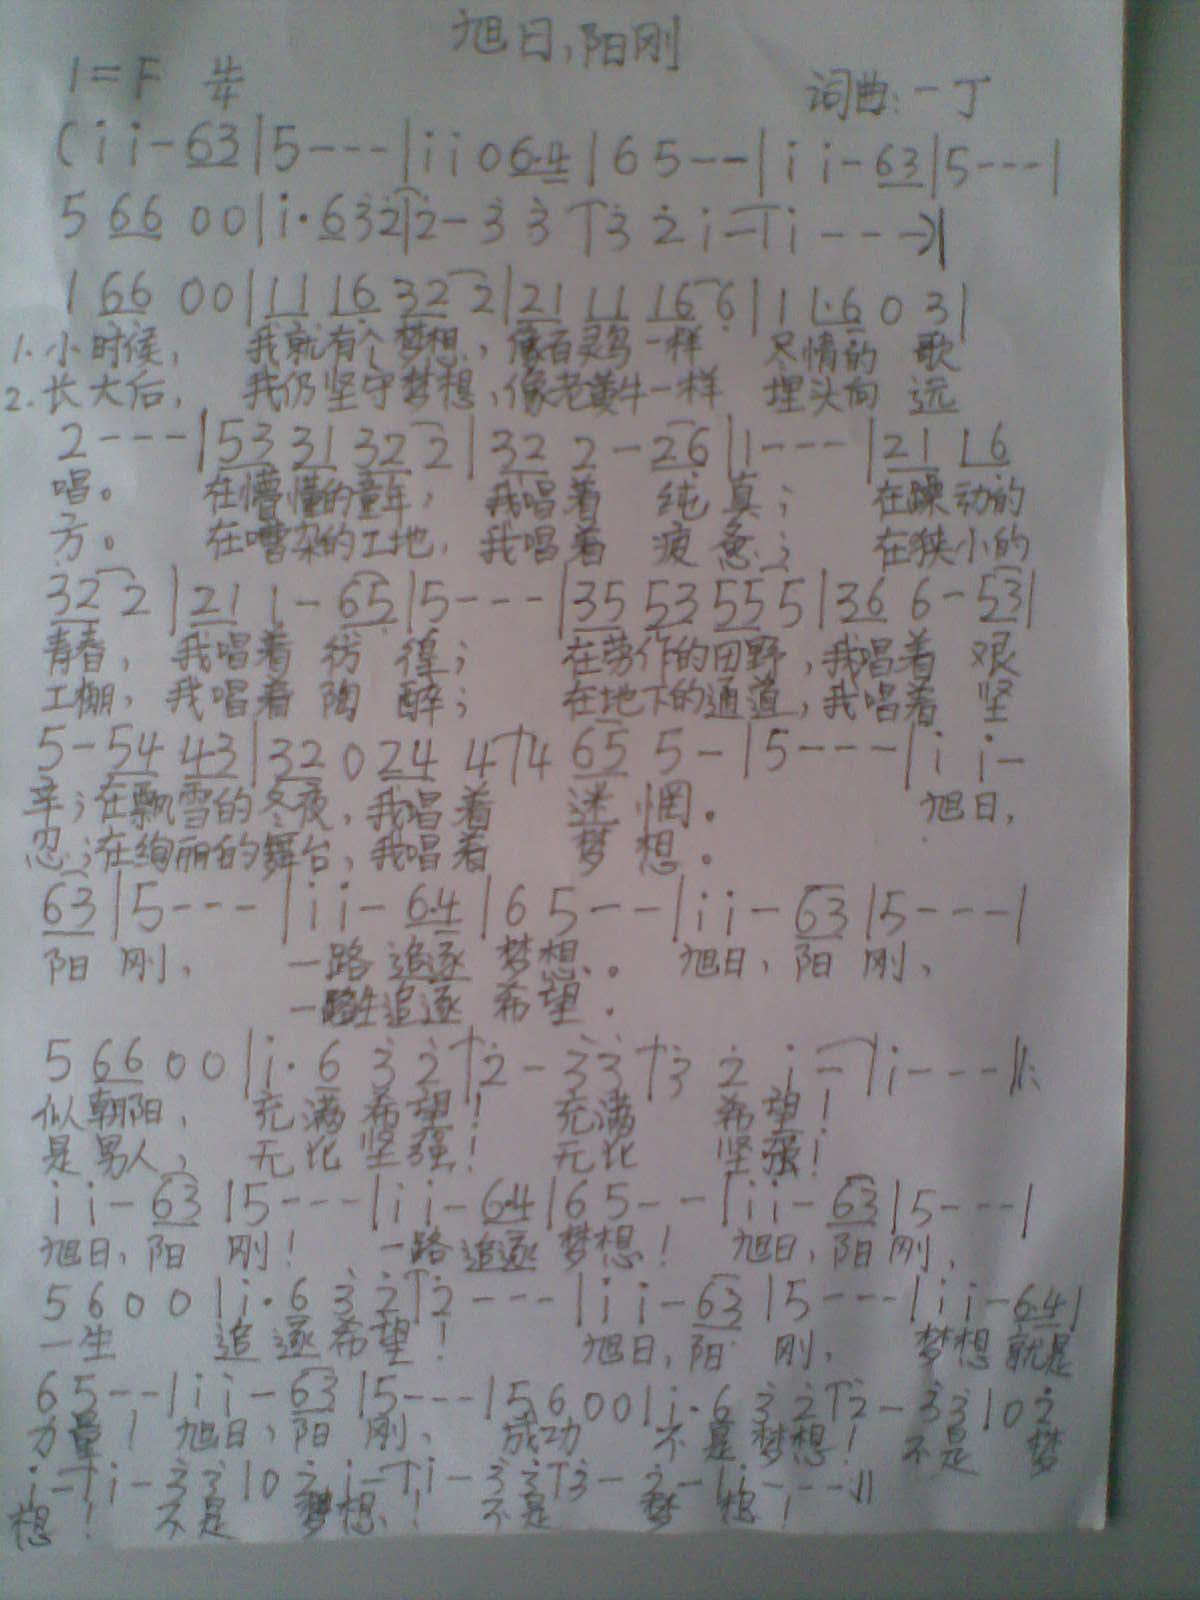 旭日,阳刚
1=F 4/4 词曲:一丁
(i i - 63 | 5 - - - | i i 0 6·4 | 6 5 - - | i i - 63 | 5 - - - |
5 66 0 0 | i· 632 | 2 - 3 3 | 3 2 i - | i - - -)|
1 66 0 0 | 11 16 32 2 | 21 11 16 6 | 1 1·6 0 3 |
1. 小时候, 我就有个梦想,像百灵鸟一样 尽情的 歌
2. 长大后, 我仍坚守梦想,像老黄牛一样 埋头向 远
2 - - - | 53 31 32 2 | 32 2 - 26 | 1 - - - | 21 16
唱。 在懵懂的童年, 我唱着 纯 真; 在躁动的
方。 在嘈杂的工地, 我唱着 疲惫; 在狭小的
32 2 | 21 1 - 65 | 5 - - - | 35 53 55 5 | 36 6 - 53 |
青春, 我唱着 彷 徨; 在劳作的田野,我唱着 艰
工棚, 我唱着 陶 醉; 在地下的通道,我唱着 坚
5 - 54 43 | 32 0 24 4 | 4 65 5 - | 5 - - - | i i -
辛;在飘雪的冬夜,我唱着 迷 惘。 旭日,
忍;在绚丽的舞台,我唱着 梦 想。
63 | 5 - - - | i i - 6·4 | 6 5 - - | i i - 63 | 5 - - - |
阳 刚, 一路 追逐 梦想。 旭日,阳 刚,
一路 追逐 希望.
5 66 0 0 | i· 6 3 2 | 2 - 3 3 | 3 2 i - | i - - - :||
似朝阳, 充满 希望! 充满 希望!
是男人, 无比 坚强! 无比 坚强!
i i - 63 | 5 - - - | i i - 6·4 | 6 5 - - | i i - 63 | 5 - - - |
旭日,阳 刚! 一路 追逐 梦想! 旭日,阳 刚,
5 6 0 0 | i· 6 3 2 | 2 - - - | i i - 63 | 5 - - - | i i - 6·4 |
一生 追 逐 希望! 旭日,阳 刚, 梦想 就是
6 5 - - | i i - 63 | 5 - - - | 5 6 0 0 | i· 6 3 2 | 2 - 3 3 | 0 2
力量! 旭日,阳 刚, 成功 不 是 梦想! 不是 梦
i - | i - 3 3 | 0 2 i - | i - 3 3 | 3 - 2 - | i - - - ||
想! 不是 梦想! 不是 梦 想!